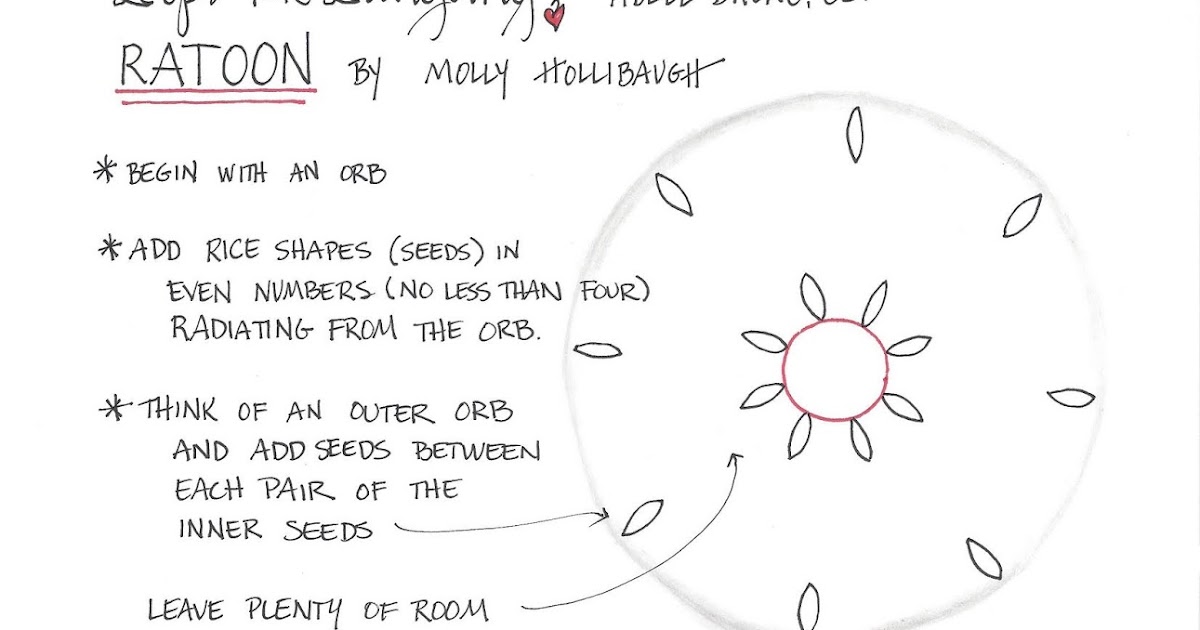 RATOON BY MOLLY HOLLIBAUGH
* BEGIN WITH AN ORB
* ADD RICE SHAPES (SEEDS) IN
EVEN NUMBERS (NO LESS THAN FOUR)
RADIATING FROM THE ORB.
* THINK OF AN OUTER ORB
AND ADD SEEDS BETWEEN
EACH PAIR OF THE
INNER SEEDS
LEAVE PLENTY OF ROOM